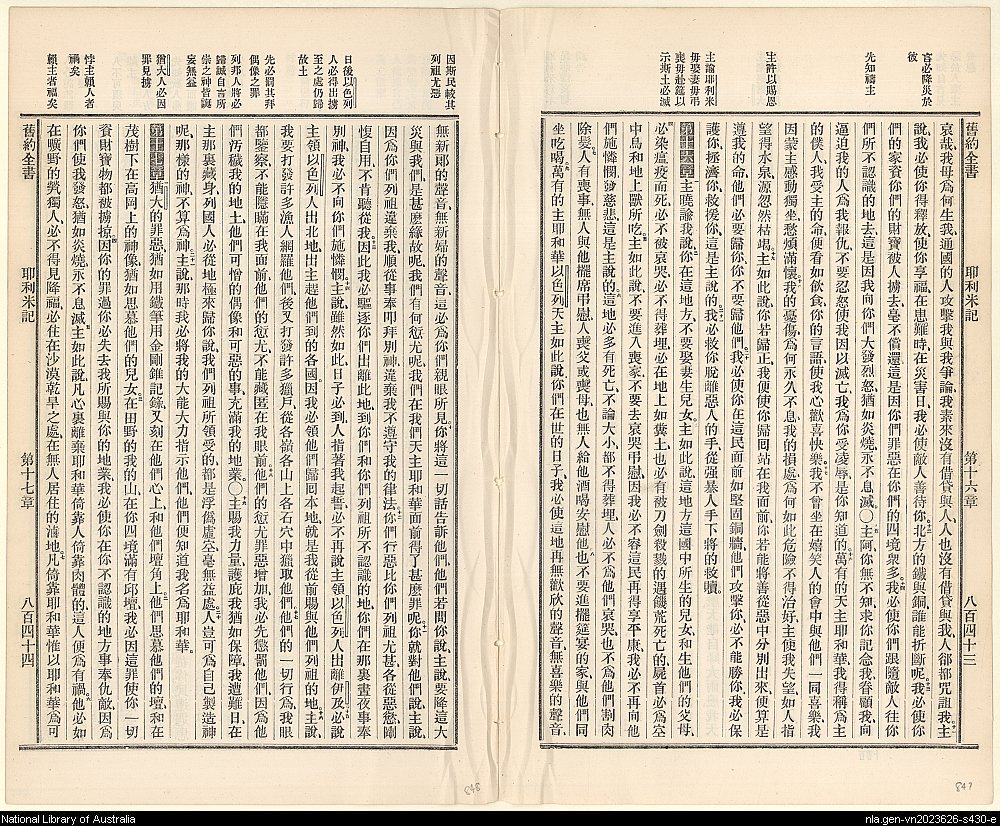 官必降災於
彼
先知禱主
主許以賜恩
主諭耶利米
毋娶妻毋弔
喪毋赴筵以
示斯土必滅
舊約全書
耶利米記
第十六章
八百四十三
哀哉我母爲何生我通國的人攻擊我與我爭論我素來沒有借貸與人人也沒有借貸與我人卻都咒詛我主
說我必使你得釋放使你享福在患難時在災害日我必使敵人善待你北方的鐵與銅誰能折斷呢我必使你
們的家資你們的財寶被人擄去毫不償還這是因你們罪惡在你們的四境衆多我必使你們跟隨敵人往你
們所不認識的地去這是因我向你們大發烈怒猶如炎燒永不息滅〇主阿你無不知求你記念我眷顧我向
逼迫我的人爲我報仇不要忍怒使我因以滅亡我爲你受凌辱是你知道的萬有的天主耶和華我得稱爲主
的僕人我受主的命便看如飲食你的言語使我心歡喜快樂我不曾坐在嬉笑人的會中與他們一同喜樂我
因蒙主感動獨坐愁煩滿懷我的憂傷爲何永久不息我的損處爲何如此危險不得治好主使我失望如人指
望得水泉源忽然枯竭主如此說你若歸正我便使你歸囘站在我面前你若能將善從惡中分別出來便算是
遵我的命他們必要歸你你不要歸他們我必使你在這民面前如堅固銅牆他們攻擊你必不能勝你我必保
護你拯濟你救援你這是主說的我必救你脫離惡人的手從强暴人手下將你救贖
第十六章主曉諭我說你在這地方不要娶妻生兒女主如此說這地方這國中所生的兒女和生他們的父母
必染瘟疫而死必不被哀哭必不得葬埋必在地上如糞土也必有被刀劍殺戮的遇饑荒死亡的屍首必爲空
中鳥和地上獸所吃主如此說不要進入喪家不要去哀哭弔慰因我必不容這民再得享平康我必不再向他
們施憐憫發慈悲這是主說的這地必多有死亡不論大小都不得葬埋人必不爲他們哀哭也不爲他們割肉
除髮人有喪事無人與他擺席弔慰人喪父或喪母也無人給他酒喝安慰他也不要進擺延宴的家與他們同
坐吃喝萬有的主耶和華以色列天主如此說你們在世的日子我必使這地再無歡欣的聲音無喜樂的聲音
因斯民較其
列祖尤惡
日後以色列
人必得出擄
至之處仍歸
故土
先必罰其拜
偶像之罪
列邦人將必
歸誠自言所
崇之神皆誕
妄無益
猶大人必因
罪見擄
恃主賴人者
禍矣
賴主者福矣
無新郞的聲音無新婦的聲音這必爲你們親眼所見你將這一切話告訴他們他們若問你說主說要降這大
災與我們是甚麽緣故呢我們有何愆尤呢我們在我們天主耶和華面前得了甚麽罪呢你就對他們說主說
因爲你們列祖違棄我順從事奉叩拜別神違棄我不遵守我的律法你們行惡比你們列祖尤甚各從惡慾剛
愎自用不肯聽從我因此我必驅逐你們出離此地到你們和你們列祖所不認識的地你們在那裏晝夜事奉
別神我必不向你們施憐憫主說雖然如此日子必到人指著我起誓必不再說主領以色列人出離伊及必說
主領以色列人出北地出主趕他們到的各國因我必領他們歸囘本地就是我從前賜與他們列祖的地主說
我要打發許多漁人網羅他們後又打發許多獵戶從各嶺各山上各石穴中獵取他們他們的一切行爲我眼
都鑒察不能隱瞞在我面前他們的愆尤不能藏匿在我眼前他們的愆尤罪惡增加我必先懲罰他們因爲他
們汚穢我的地土他們可憎的偶像和可惡的事充滿我的地業〇主賜我力量護庇我猶如保障我遭難日在
主那裏藏身列國人必從地極來歸你說我們列祖所領受的都是浮僞虛空毫無益處人豈可爲自己製造神
呢那樣的神不算爲神主說那時我必將我的大能大力指示他們他們便知道我名爲耶和華
第十七章猶大的罪惡猶如用鐵筆用金剛錐記錄又刻在他們心上和他們壇角上他們思慕他們的壇和在
茂樹下在高岡上的神像猶如思慕他們的兒女在田野的我的山在你四境滿有邱壇我必因這罪使你一切
資財寶物都被擄掠因你的罪過你必失去我所賜與你的地業我必使你在你不認識的地方事奉仇敵因爲
你們使我發怒猶如炎燒永不息滅主如此說凡心裏離棄耶和華倚靠人倚靠肉體的這人便爲有禍他必如
在曠野的煢獨人必不得見降福必住在沙漠乾旱之處在無人居住的滷地凡倚靠耶和華惟以耶和華爲可
舊約全書
耶利米記
第十七章
八百四十四
848
847
National Library of Australia
nla.gen-vn2023626-s430-e